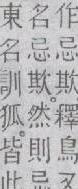 作忌欺釋鳥
名忌欺然則忌
東名訓狐皆此